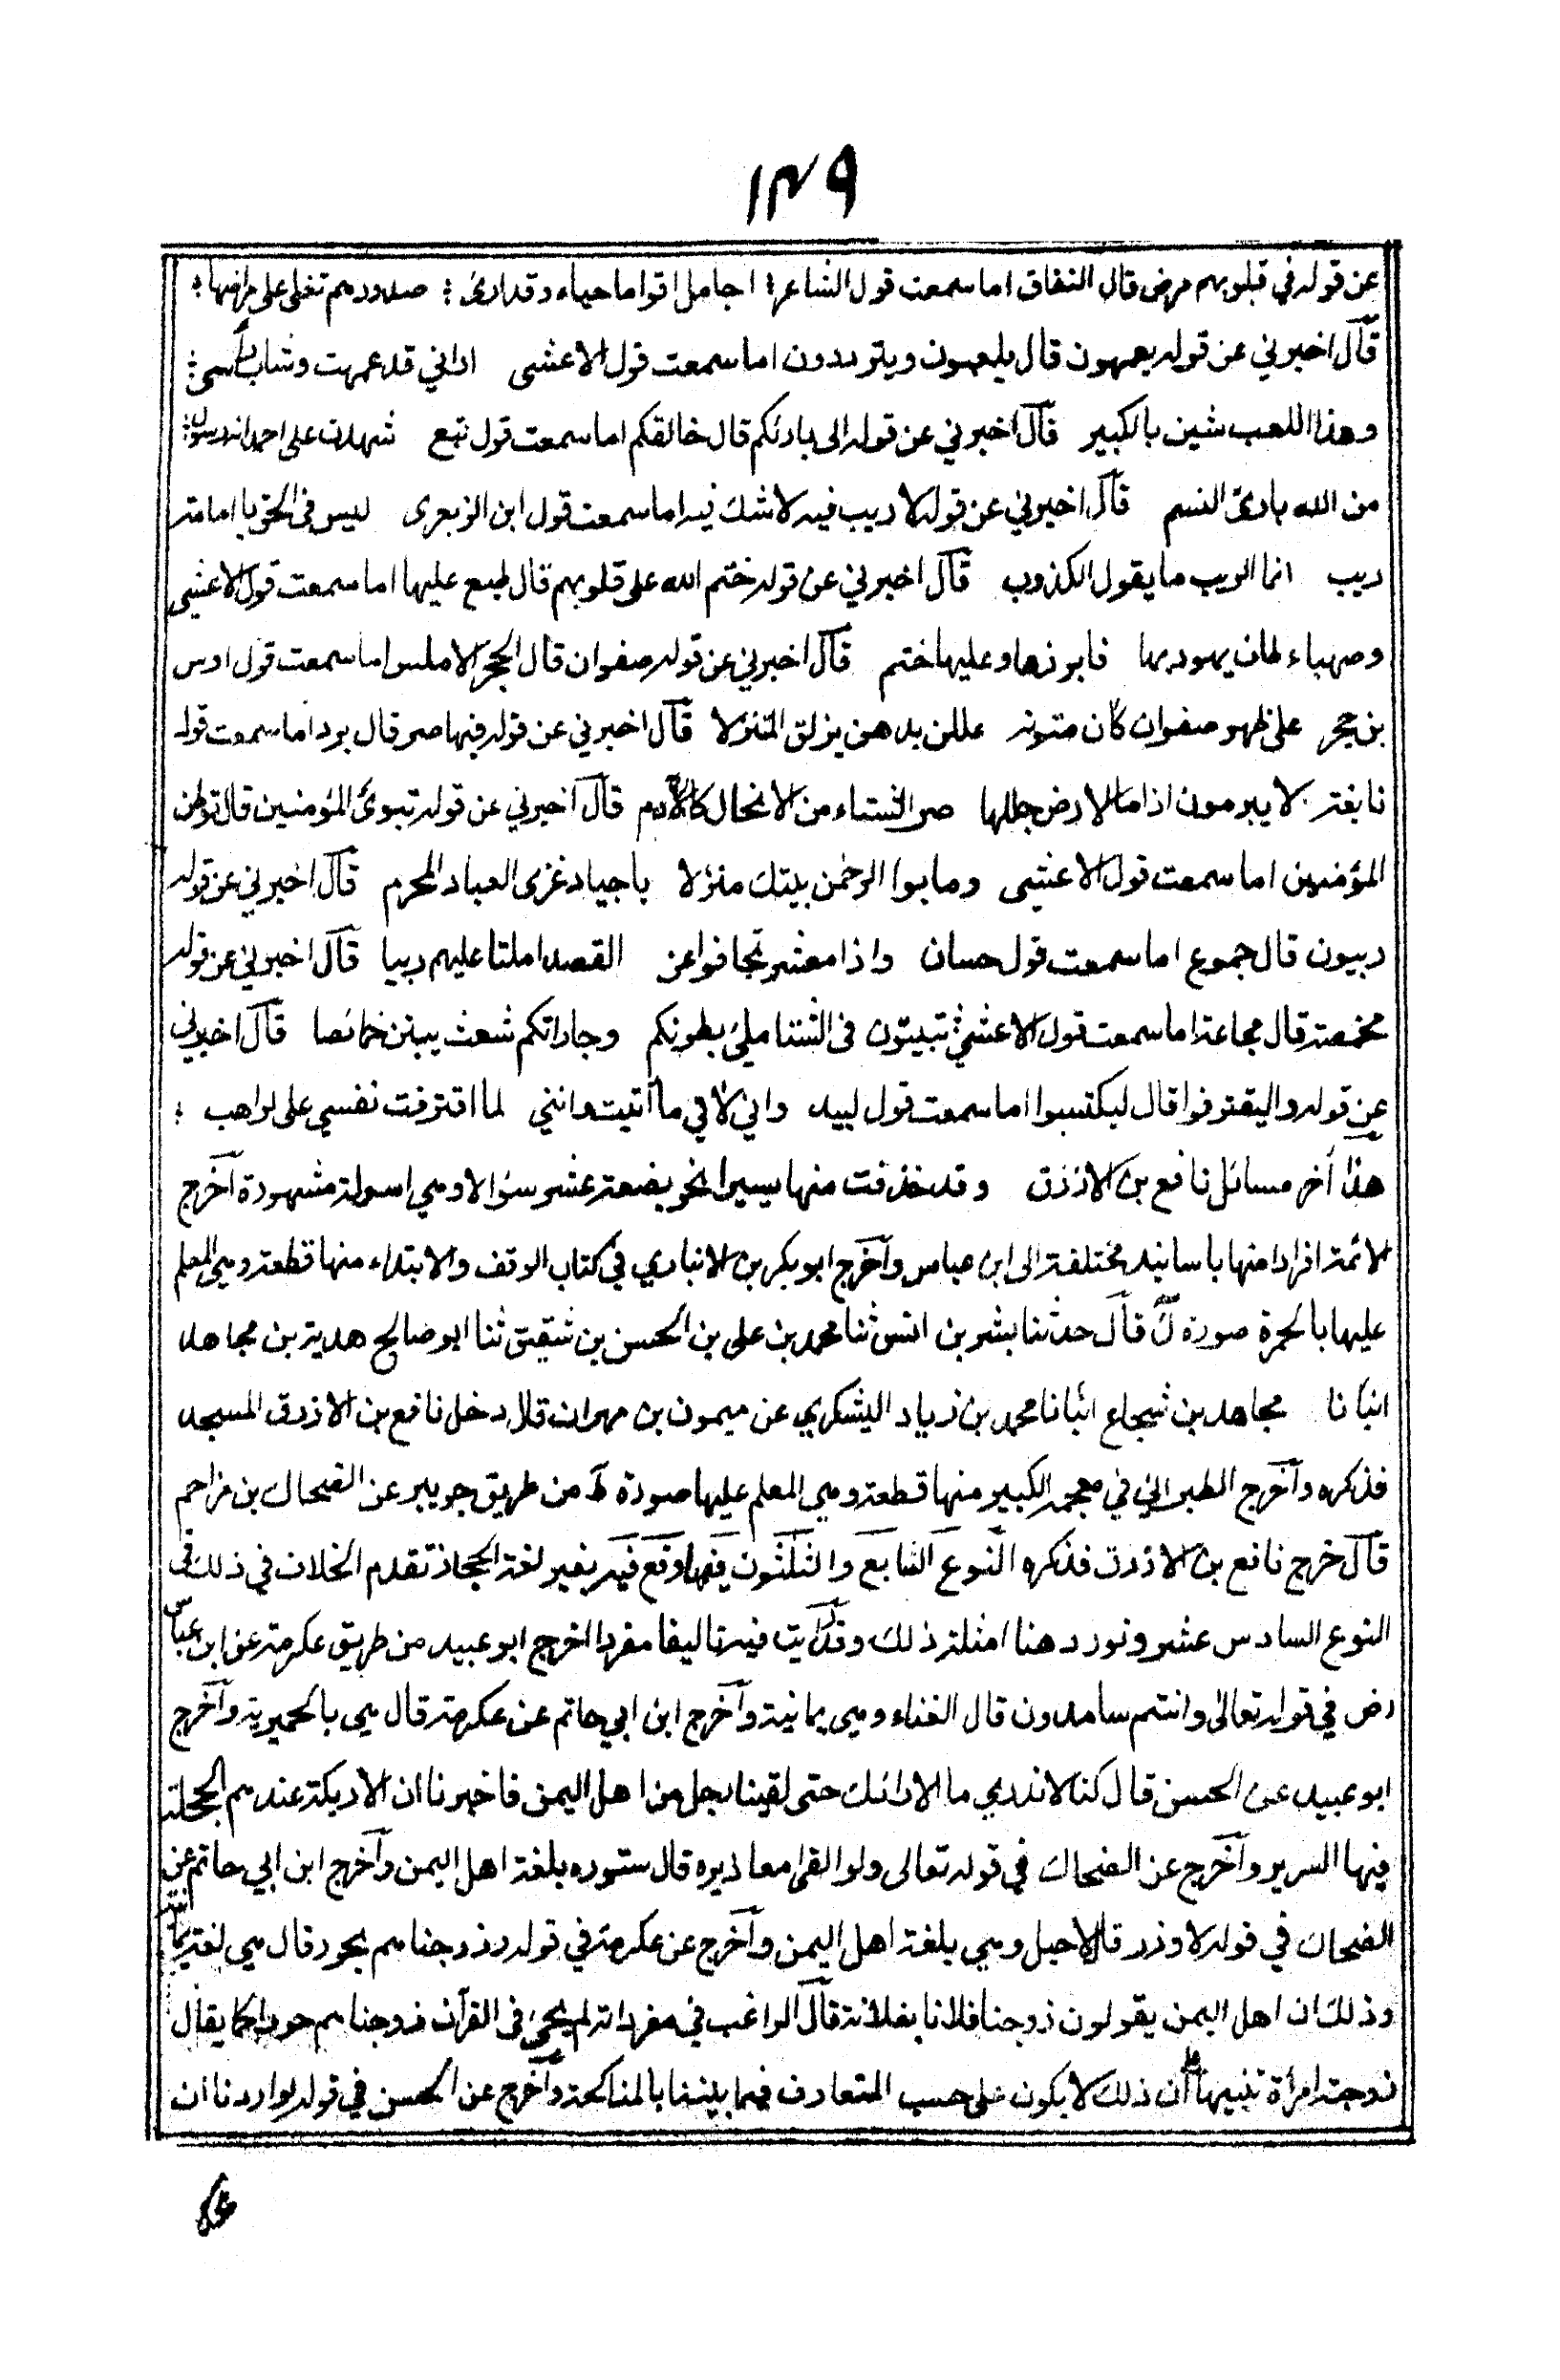 ١٤٩
عن قوله في قلوبهم مرض قال النفاق اما سمعت قول الشاعر اجامل اقواما حياء وقد ارى صدورهم تغلى على مراضها
قال اخبرني عن قوله يعمهون قال يلعبون ويترددون اما سمعت قول الاعشى اراني قد عمهت وشاب رأسي
وهذا اللعب شين بالكبير قال اخبرني عن قوله الى بارئكم قال خالقكم اما سمعت قول تبع شهدت على احمد انه رسول
من الله بارئ النسم قال اخبرني عن قوله لا ريب فيه لا شك فيه اما سمعت قول ابن الزبعرى ليس في الحق يا امامة
ريب انما الريب ما يقول الكذوب قال اخبرني عن قوله ختم الله على قلوبهم قال طبع عليها اما سمعت قول الاعشى
وصهباء طاف يهوديها فابرزها وعليها ختم قال اخبرني عن قوله صفوان قال الحجر الاملس اما سمعت قول اوس
بن حجر على ظهر صفوان كان متونه عللن بدهن يزلق المتنزلا قال اخبرني عن قوله فيها صر قال برد اما سمعت قول
نابغة لا يبرمون اذا ما الارض جللها صر الشتاء من الامحال كالادم قال اخبرني عن قوله تبوئ المؤمنين قال توطن
المؤمنين اما سمعت قول الاعشى وما بوا الرحمن بيتك منزلا باجياد غزى العباد المحرم قال اخبرني عن قوله
ربيون قال جموع اما سمعت قول حسان واذا معشر تجافوا عن القصد املنا عليهم ربيا قال اخبرني عن قوله
مخمصة قال مجاعة اما سمعت قول الاعشى تبيتون في الشتا ملئ بطونكم وجاراتكم شعث يبتن خمائصا قال اخبرني
عن قوله واليقترفوا قال ليكتسبوا اما سمعت قول لبيد واني لآتي ما أتيت وانني لما اقترفت نفسي على لراهب
هذا آخر مسائل نافع بن الازرق وقد حذفت منها يسيرا نحو بضعة عشر سؤالا وهي اسولة مشهورة اخرج
الائمة افرادا منها باسانيد مختلفة الى ابن عباس وآخرج ابو بكر بن الانباري في كتاب الوقف والابتداء منها قطعة وهي المعلم
عليها بالحمرة صورة ك قال حدثنا بشر بن انس ثنا محمد بن على بن الحسن بن شقيق ثنا ابو صالح هدية بن مجاهد
انبأنا مجاهد بن شجاع انبأنا محمد بن زياد اليشكري عن ميمون بن مهران قال دخل نافع بن الازرق المسجد
فذكره وآخرج الطبراني في معجمه الكبير منها قطعة وهي المعلم عليها صورة ط من طريق جويبر عن الضحاك بن مزاحم
قال خرج نافع بن الازرق فذكره النوع السابع والثلثون فيما وقع فيه بغير لغة الحجاز تقدم الخلاف في ذلك في
النوع السادس عشر ونورد هنا امثلة ذلك وقد رايت فيه تاليفا مفردا اخرج ابو عبيد من طريق عكرمة عن ابن عباس
رض في قوله تعالى وانتم سامدون قال الغناء وهي يمانية وآخرج ابن ابي حاتم عن عكرمة قال هي بالحميرية وآخرج
ابو عبيد عن الحسن قال كنا لا ندري ما الارائك حتى لقينا رجل من اهل اليمن فاخبرنا ان الاريكة عندهم الحجلة
فيها السرير وآخرج عن الضحاك في قوله تعالى ولو القى معاذيره قال ستوره بلغة اهل اليمن وآخرج ابن ابي حاتم عن
الضحاك في قوله لا وزر قال لا حيل وهي بلغة اهل اليمن وآخرج عن عكرمة في قوله وزوجناهم بحور قال هي لغة يمانية
وذلك ان اهل اليمن يقولون زوجنا فلانا بفلانة قال الراغب في مفرداته لم يجئ في القرآن زوجناهم حورا كما يقال
زوجته امرأة تنبيها على أن ذلك لا يكون على حسب المتعارف فيما بيننا بالمناكحة وآخرج عن الحسن في قوله لو اردنا ان